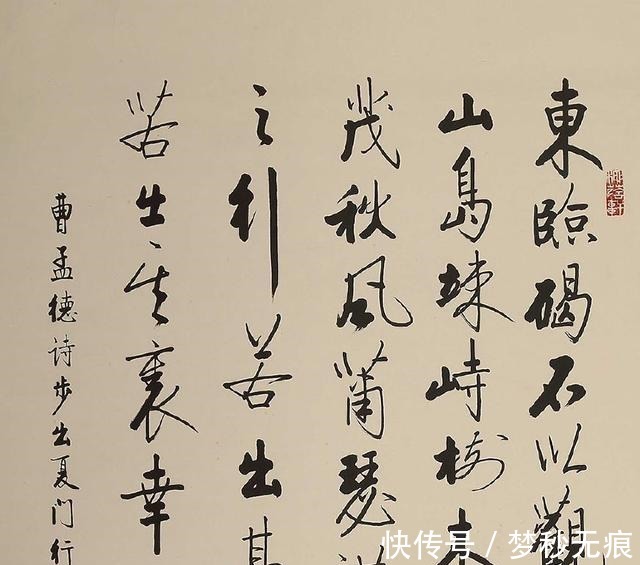 東臨碣石以觀
山島竦峙樹木
茂秋風蕭瑟洪
之行若出其
若出其裏幸
曹孟德诗步出夏门行
快传号 / 梦秒无痕